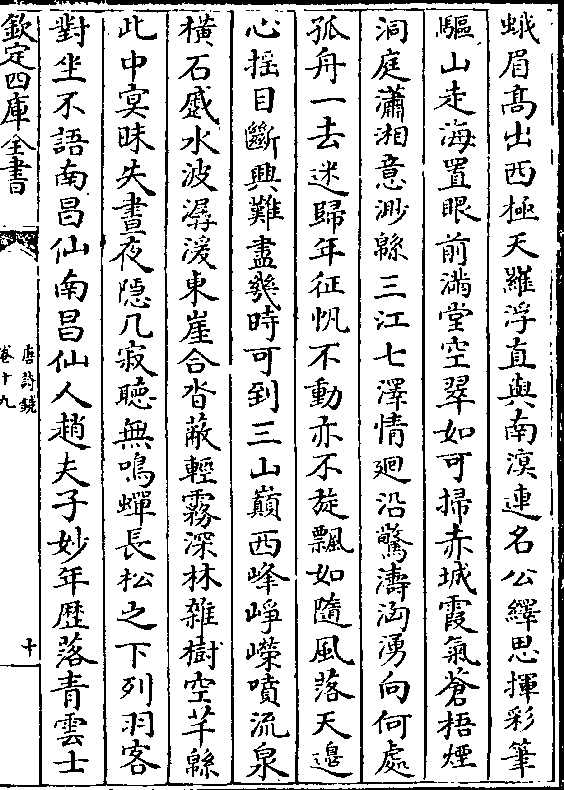 蛾眉髙出西極天羅浮直與南溟連名公繹思揮彩筆
驅山走海置眼前滿堂空翠如可掃赤城霞氣蒼梧煙
洞庭瀟湘意渺緜三江七澤情廻沿驚濤洶湧向何處
孤舟一去迷歸年征帆不動亦不旋飄如隨風落天邊
心揺目斷興難盡幾時可到三山巔西峰崢嶸噴流泉
橫石蹙水波潺湲東崖合沓蔽輕霧深林雜樹空芊緜
此中寘昧失晝夜隠几寂聴無鳴蟬長松之下列羽客
對坐不語南昌仙南昌仙人趙夫子妙年歴落青雲士
欽定四庫全書
唐詩鏡
卷十九
十